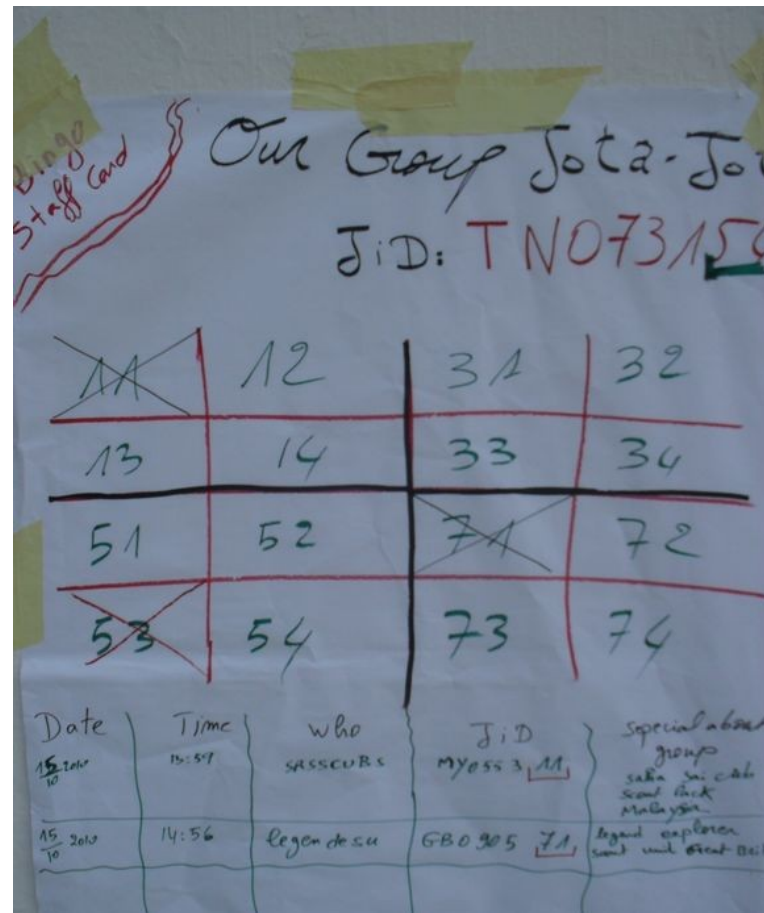 Bingo
Staff Card
Our Group Jota-Jot
JiD: TN07315
11 12 31 32
13 14 33 34
51 52 71 72
53 54 73 74
Date Time Who JiD special about
group
15/10 2010 13:59 SRSSCUBS MY0553 11
scout Pack
Malaysia
15/10 2010 14:56 legendesu GB0905 71 legend explorer
scout unit Great